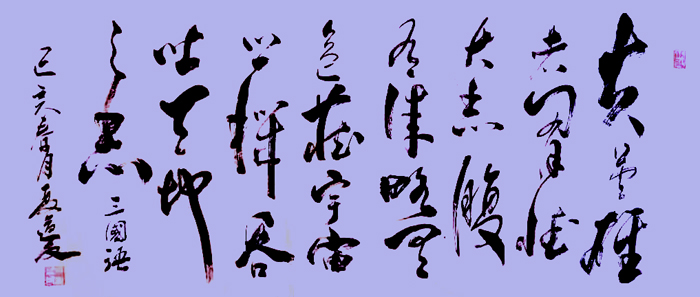 夫英雄
者胸懷
大志腹
有 略
包藏宇宙
之機吞
吐天地
之志 三國語
己亥 月